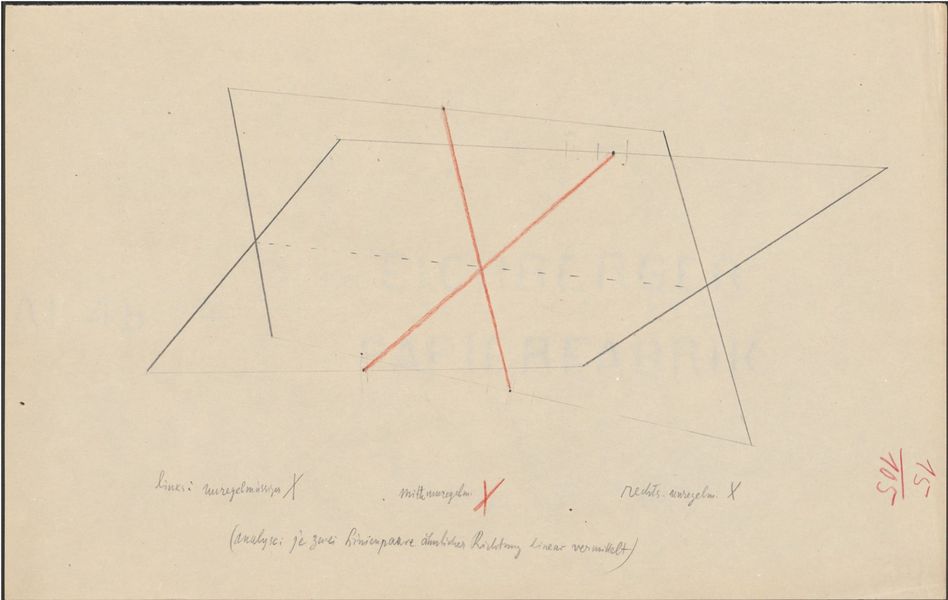 links: unregelmässiges X
Mitte unregelm. X
rechts. unregelm. X
(analyse: je zwei Linienpaare ähnlicher Richtung linear vermittelt)
15
105